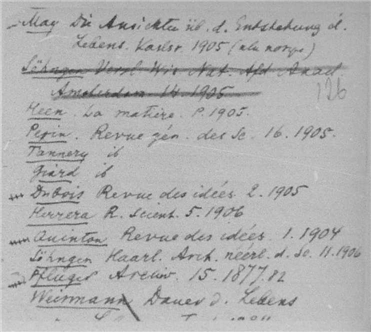 May Die Ansichten üb. d. Entstehung d.
Lebens. Karlsr 1905 (
Söhngen Versl Wis Nat. Afd Akad
Amsterdam 14. 1905
126
Heen. La matière. P. 1905.
Pepin. Revue gén. des Sc. 16. 1905.
Tannery ib
Giard ib
DuBois Revue des idées 2. 1905
Herrera R. scient. 5. 1906
Quinton Revue des idées. 1. 1904
Söhngen Haarl. Arch. néerl. d. Sc. 11. 1906
Pflüger Archiv. 15. 1877.
Weismann Dauer d. Lebens